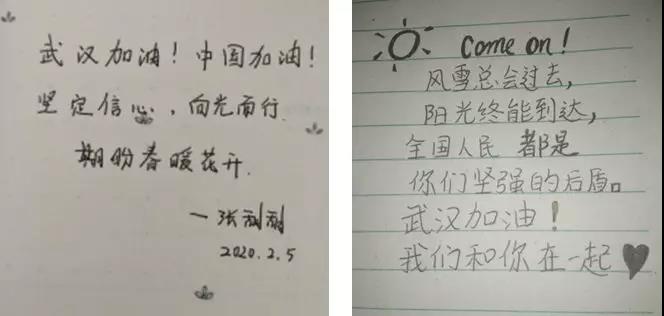 武汉加油！中国加油！
坚定信心，向光而行.
期盼春暖花开.
一张莉莉
2020.2.5
Come on!
风雪总会过去,
阳光终能到达,
全国人民 都是
你们坚强的后盾。
武汉加油!
我们和你在一起